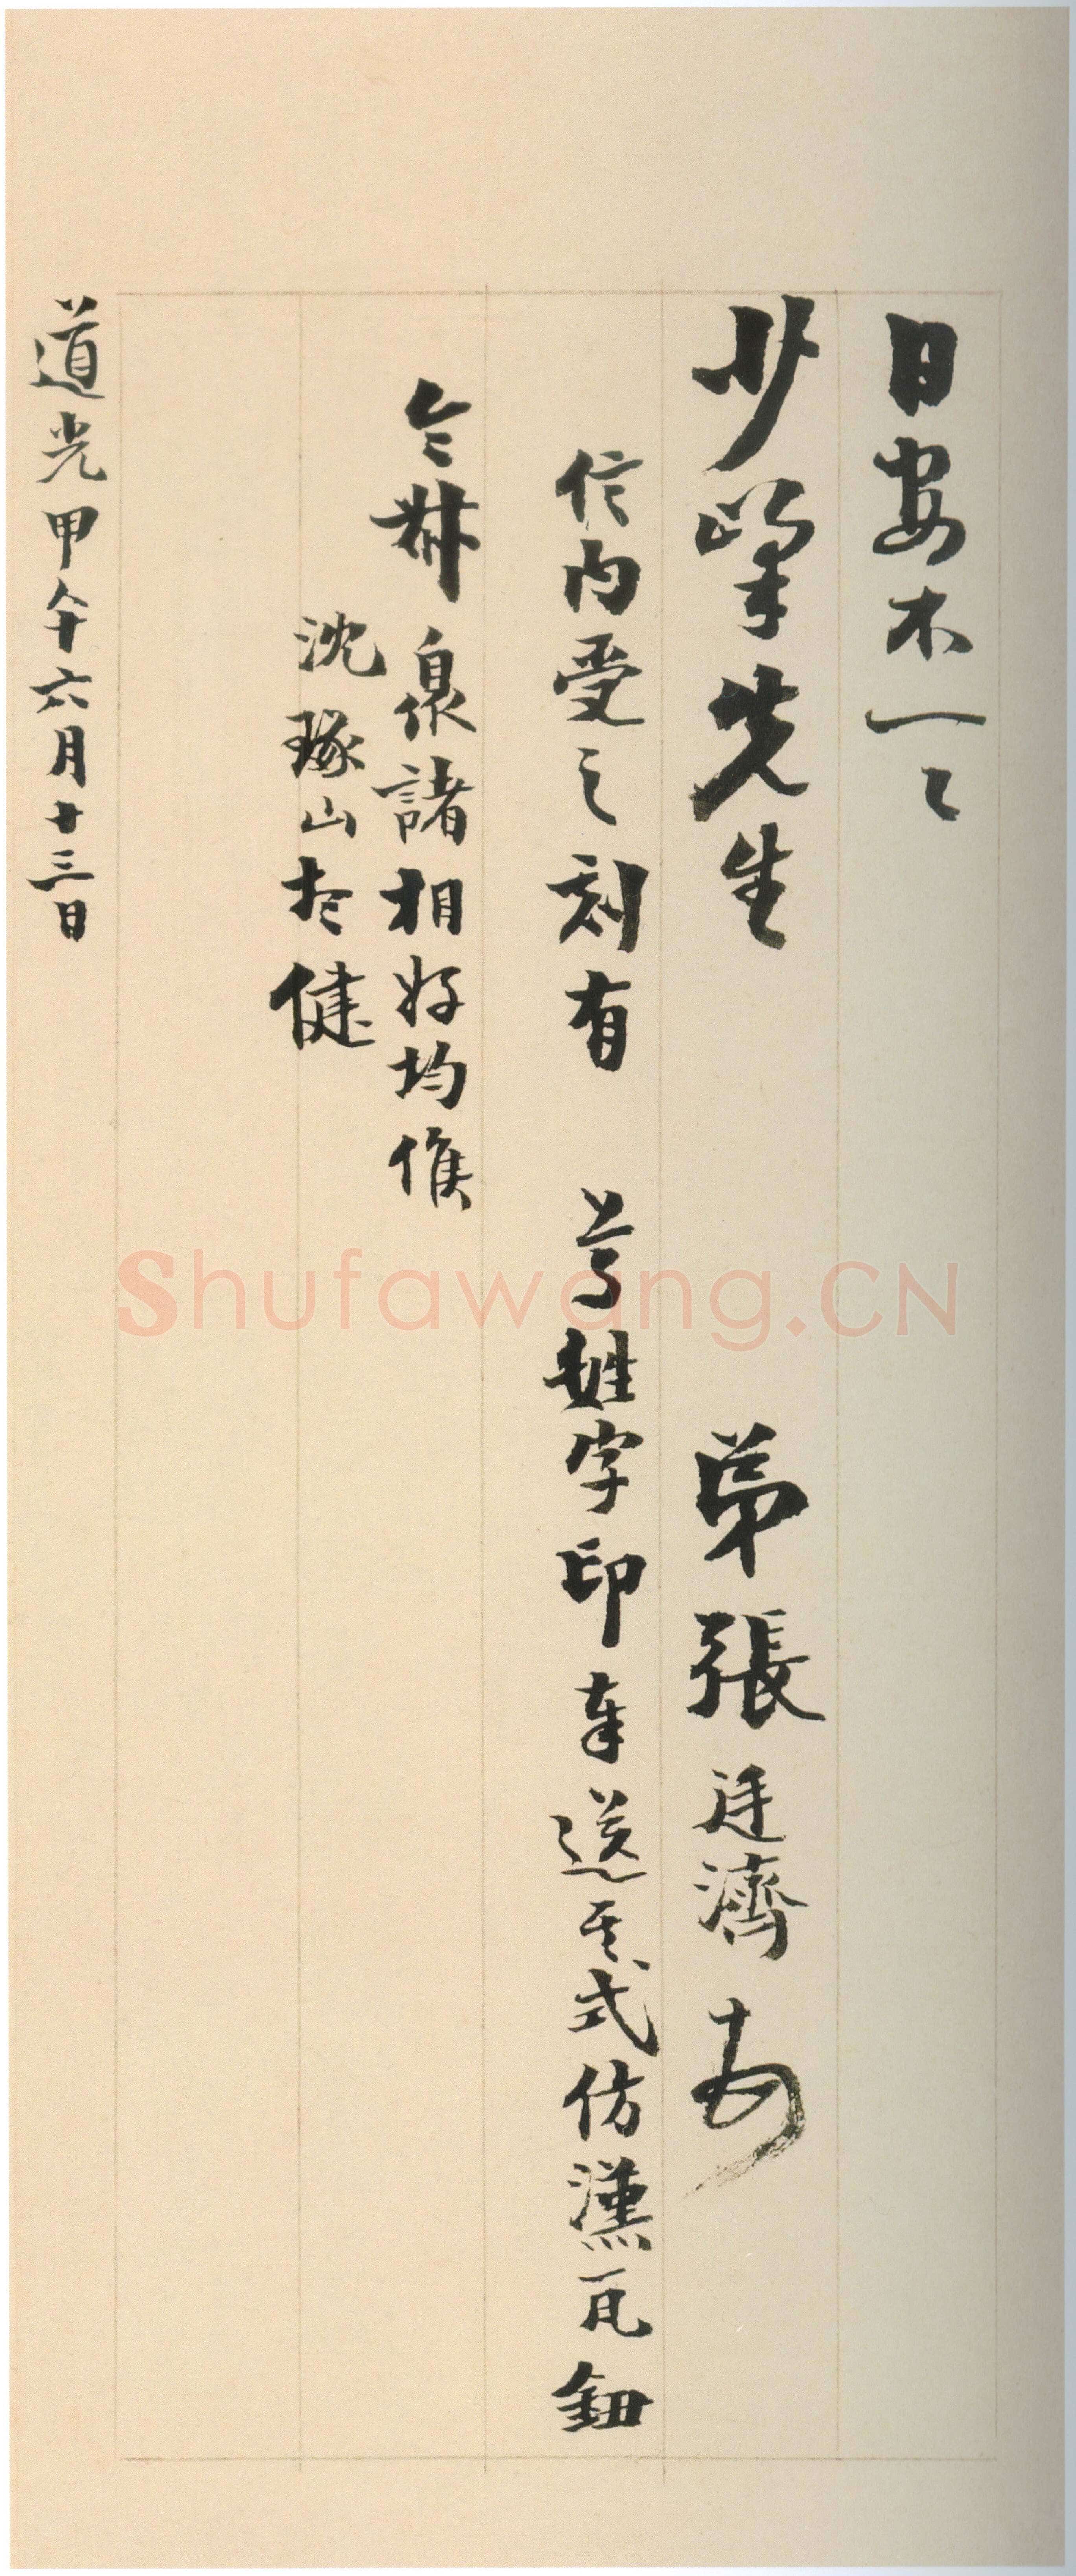 日安不一〻
少峯先生 弟張廷濟
信内受之刻有 尊姓字印奉送其式仿漢瓦鈕
令叔泉諸相好均候
沈琢山老健
道光甲午六月十三日
Shufawang.CN